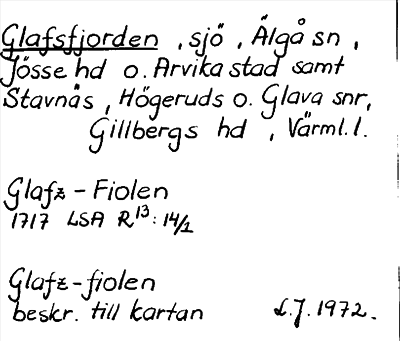 Glafsfjorden , sjö , Älgå sn ,
Jösse hd o. Arvika stad samt
Stavnäs , Högeruds o. Glava snr,
Gillbergs hd , Värml. l.
Glafz - Fiolen
1717 LSA R13: 14/1
Glafz - fiolen
beskr. till kartan L. J. 1972.